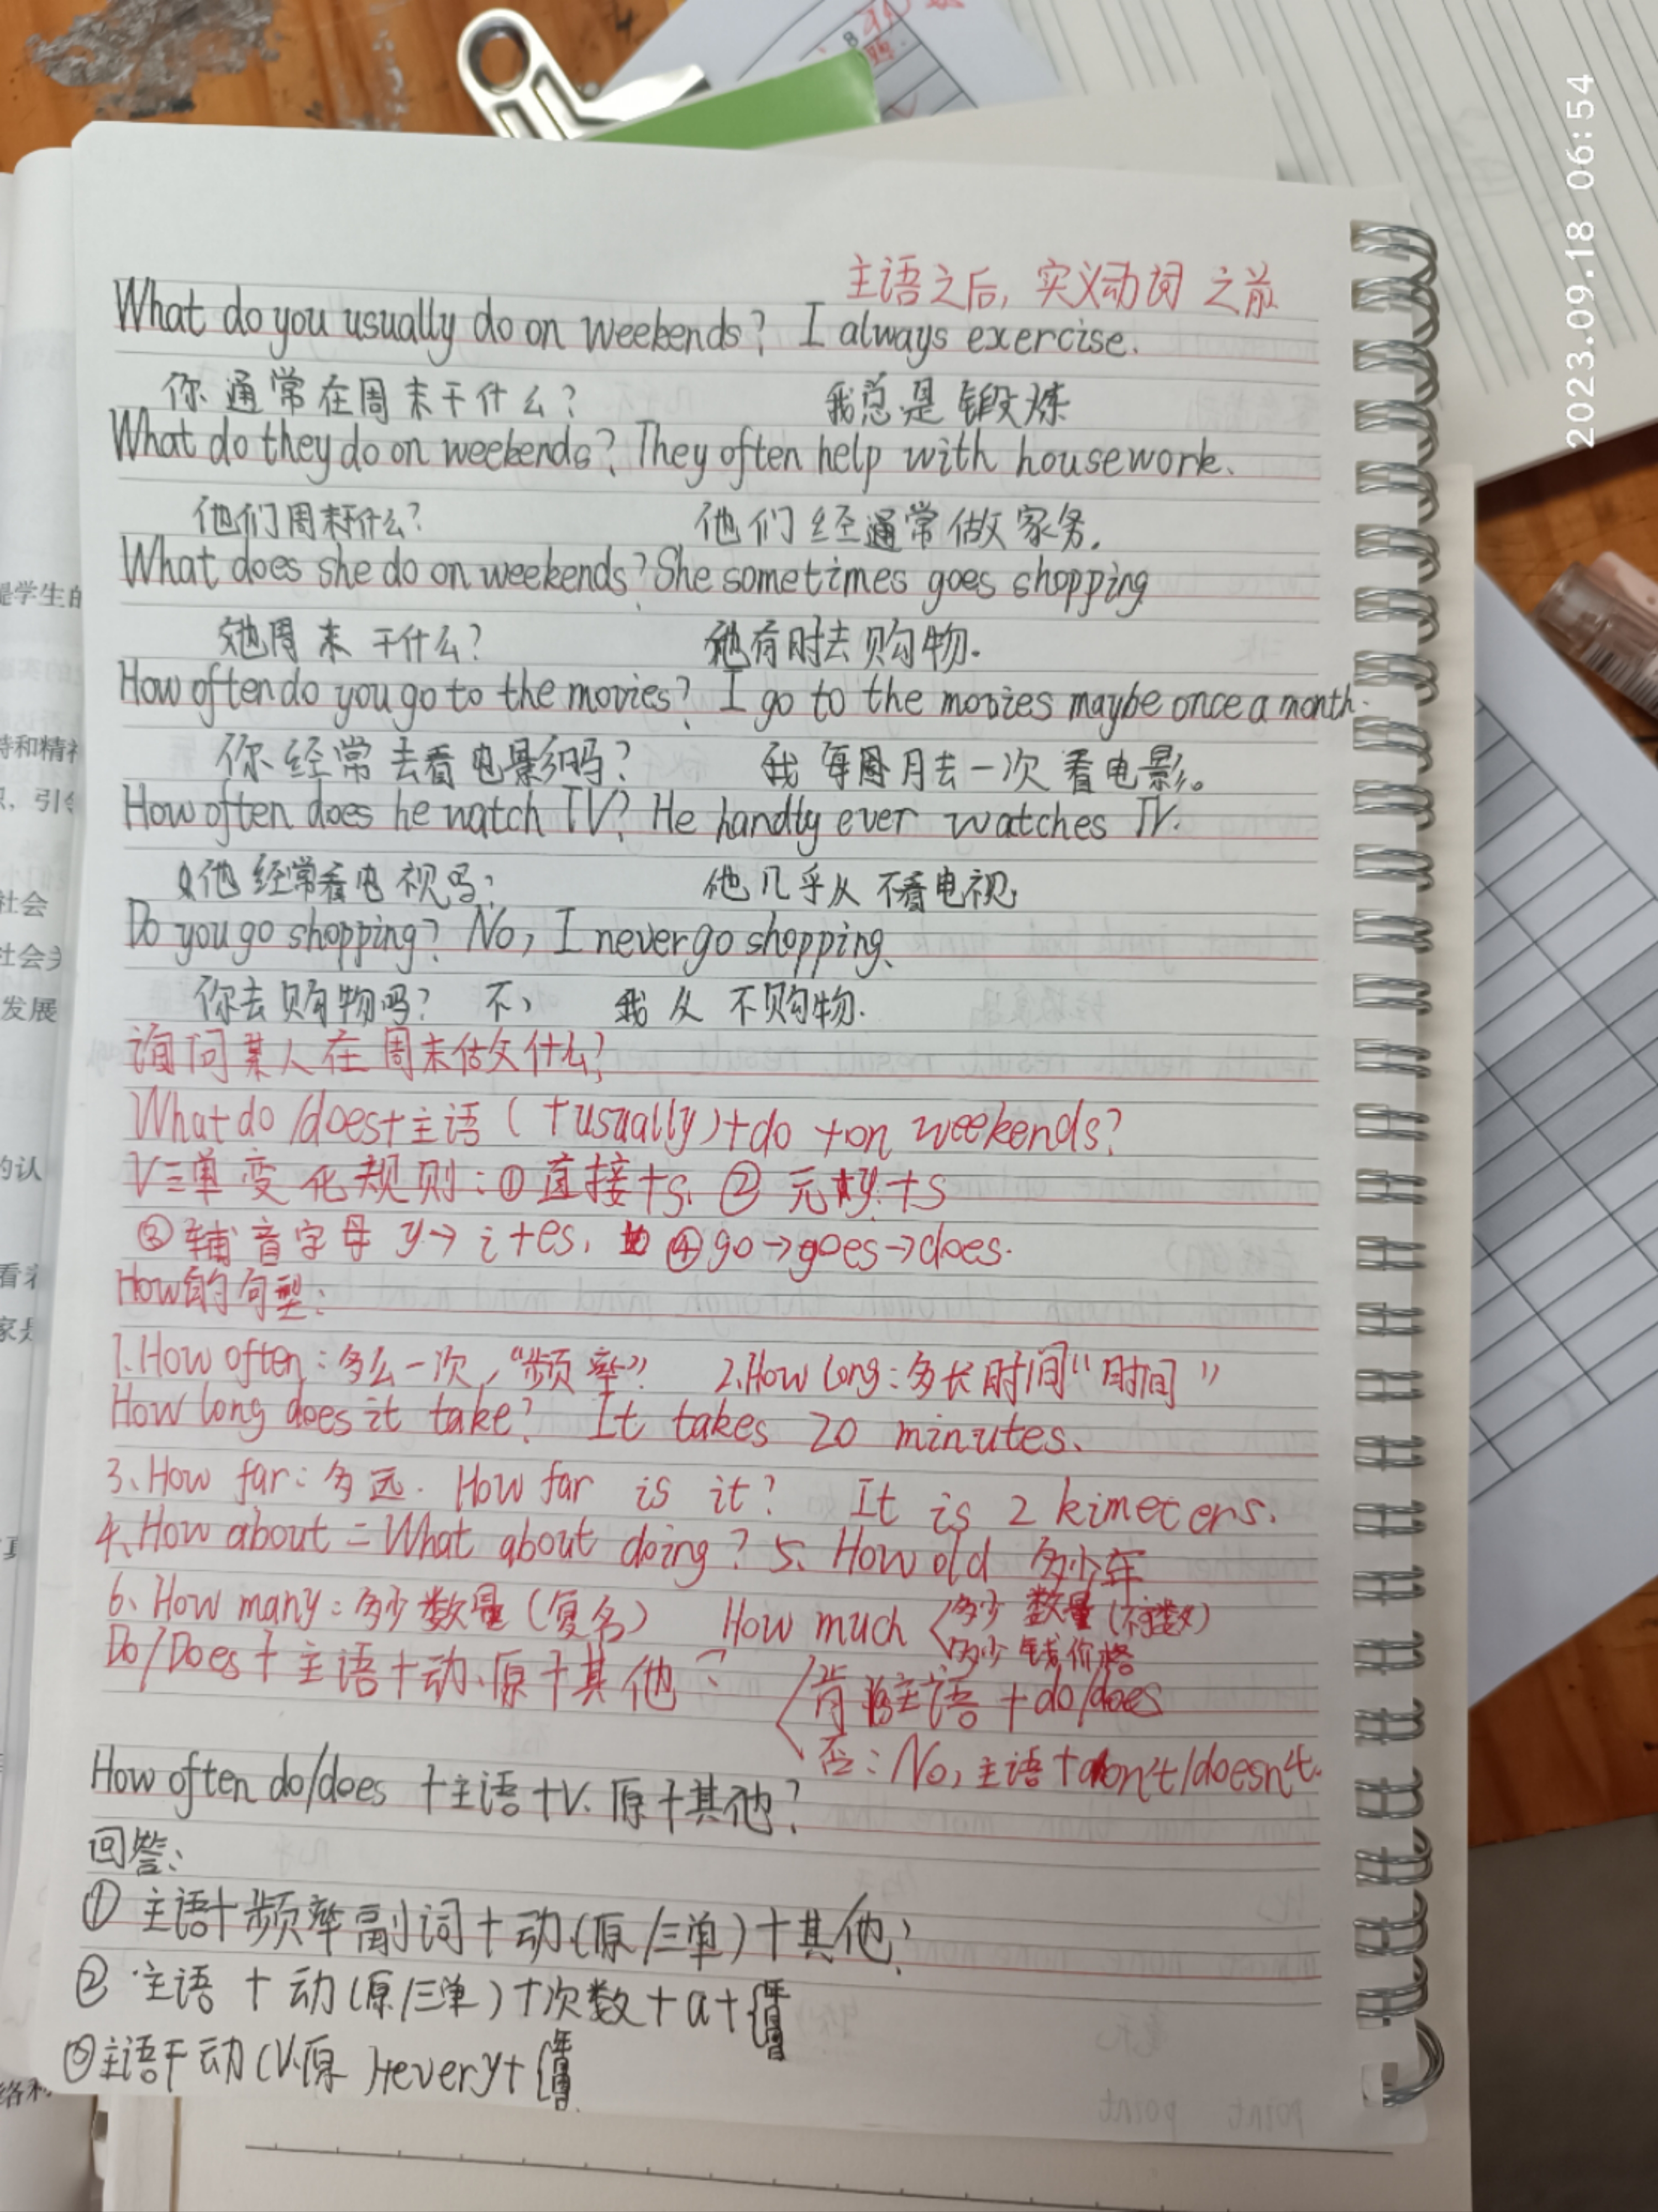 主语之后，实义动词 之前
What do you usually do on weekends? I always exercise.
你通常在周末干什么？ 我总是锻炼
What do they do on weekends? They often help with housework.
他们周末干什么？ 他们经通常做家务.
What does she do on weekends? She sometimes goes shopping
她周末干什么？ 她有时去购物.
How often do you go to the movies? I go to the movies maybe once a month.
你经常去看电影吗？ 我每月去一次看电影。
How often does he watch TV? He handly ever watches TV.
他经常看电视吗？ 他几乎从不看电视
Do you go shopping? No, I never go shopping.
你去购物吗？ 不， 我从不购物.
询问某人在周末做什么？
What do/does+主语（+usually)+do +on weekends?
V三单变化规则：①直接+s. ②元+y.+s
③辅音字母y→i+es. ④go→goes→does.
How的句型：
1.How often：多久一次，“频率” 2.How long：多长时间“时间”
How long does it take? It takes 20 minutes.
3、How far：多远. How far is it? It is 2 kimeters.
4、How about = What about doing? 5、How old 多少年
6、How many：多少数量（复名） How much 多少数量（不可数）
多少钱价格
Do/Does+主语+动.原+其他？ 肯 主语+do/does
否：No,主语+don't/doesn't.
How often do/does +主语+V.原+其他？
回答：
① 主语+频率副词+动.(原/三单)+其他.
② 主语 + 动(原/三单)+次数+a+{
③主语+动(V.原)+every+{
2023.09.18 06:54
提学生的
社会
发展
的认